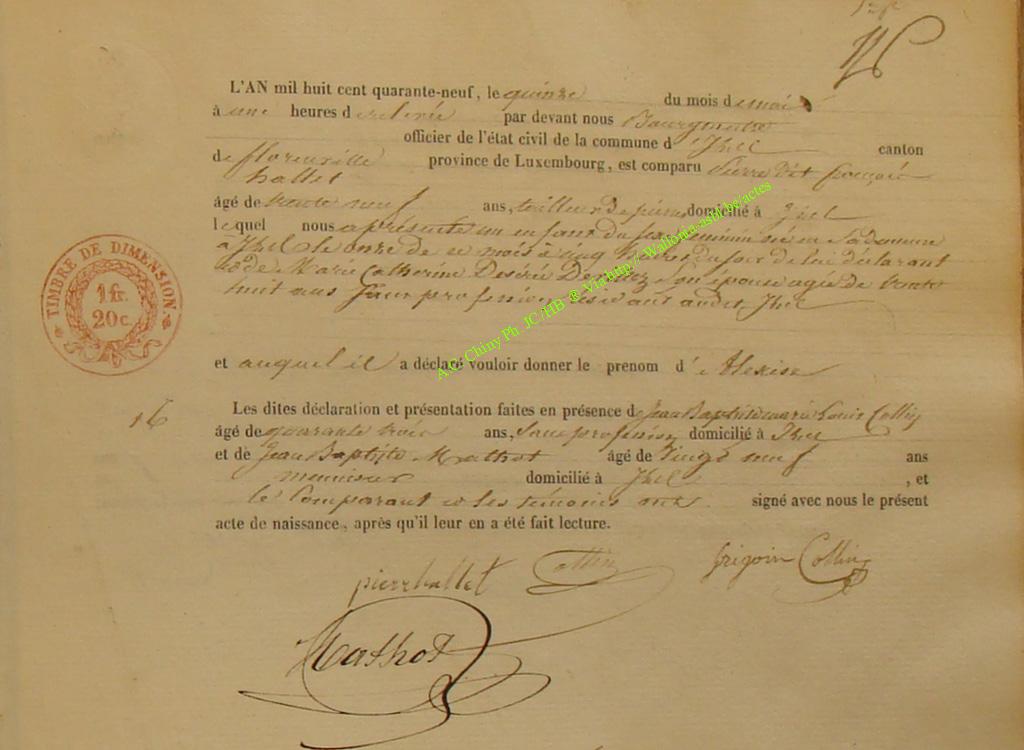 L'AN mil huit cent quarante-neuf, le quinze du mois de mai
à une heures de relevée par devant nous Bourgmestre
officier de l'état civil de la commune d'Izel canton
de florenville province de Luxembourg, est comparu Pierre dit françois
hallet
âgé de trente neuf ans, tailleur de pierre domicilié à Izel
lequel nous a présenté un enfant du sexe féminin né en sa demeure
à Izel le onze de ce mois à cinq heures du soir de lui déclarant
et de Marie Catherine Desirée son épouse agée de trente
huit ans sans profession audit Izel
et auquel il a déclaré vouloir donner le prenom d' Alexise
16
Les dites déclaration et présentation faites en présence de Jean Baptiste marie Louis Collin
âgé de quarante trois ans, sans profession domicilié à Izel
et de Jean Baptiste Mathot âgé de vingt neuf ans
menuisier domicilié à Izel , et
le Comparant et les témoins ont signé avec nous le présent
acte de naissance, après qu'il leur en a été fait lecture.
pierre hallet Collin Grégoire Collin
Mathot
TIMBRE DE DIMENSION.
1 fr.
20 c.
A.C Chiny Ph JC/HB ® Via http://Wallonia-asbl.be/actes